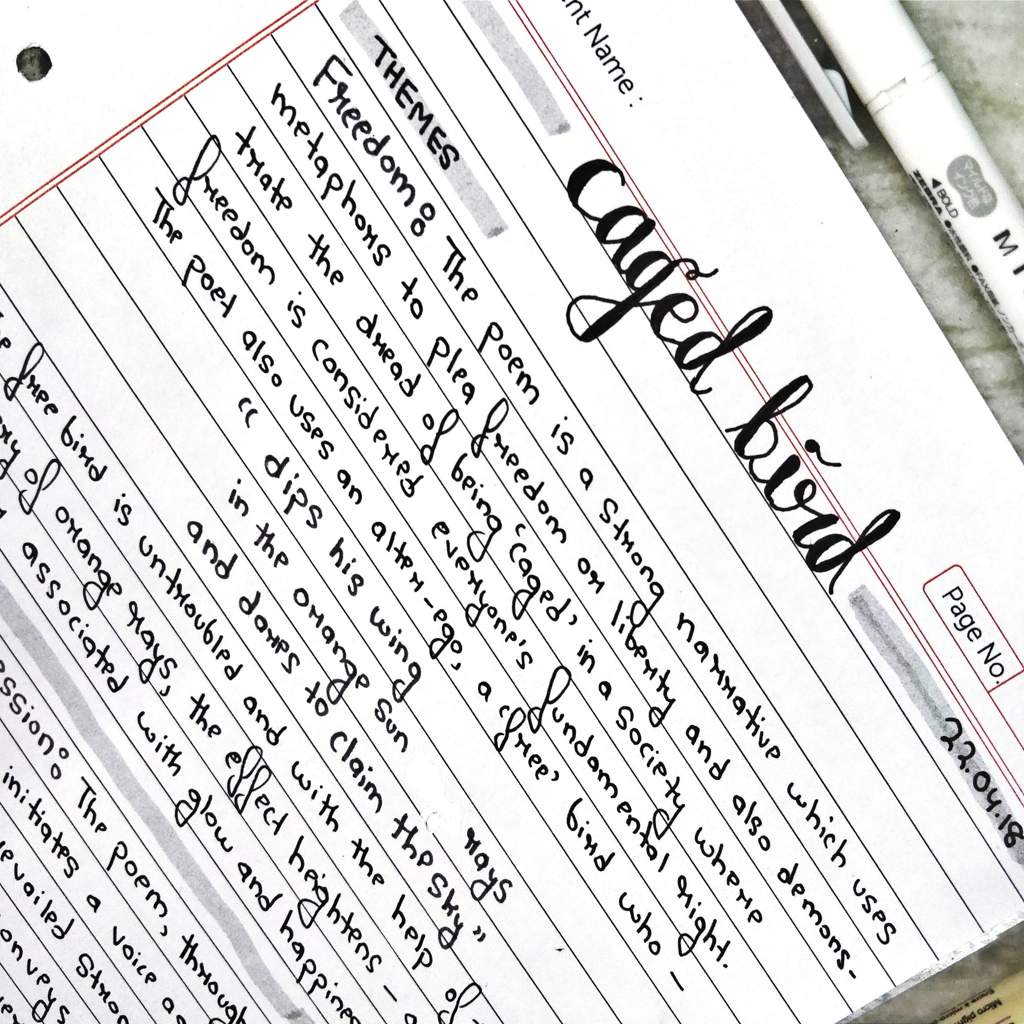 nt Name :
Page No.
22.04.18
caged bird
THEMES
Freedom: The poem is a strong narrative which uses
metaphors to plea freedom or liberty and also demons-
trate the dread of being 'caged' in a society where
freedom is considered everyone's fundamental right.
The poet also uses an alter-ego, a 'free' bird who -
" dips his wing
in the orange sun rays
and dares to claim the sky"
free bird is untroubled and with the help of
of orange rays, the effect heightens -
associated with glow and happines
ssion: The poem, through
initiates a voice as
evailed stron
onveys
ZEBRA
BOLD